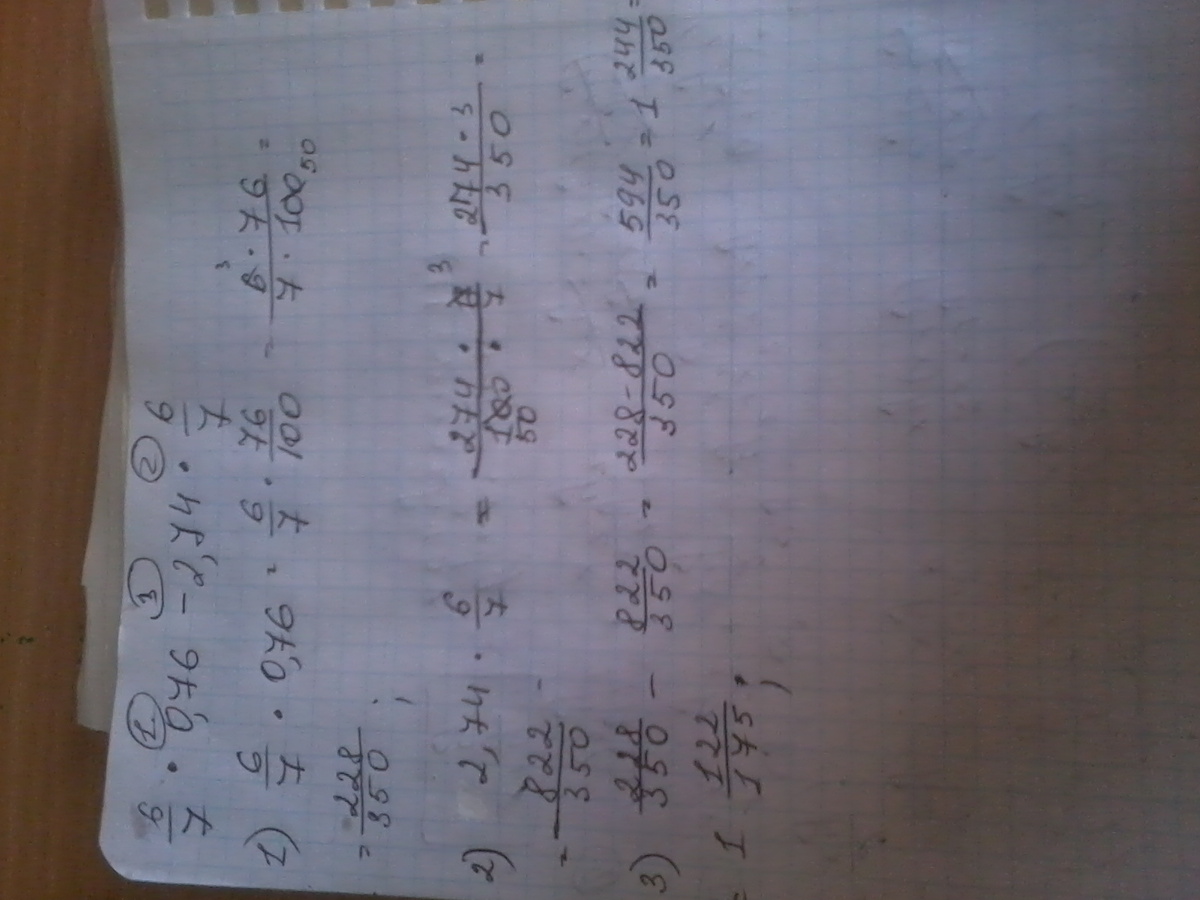 6/7 · 0,76 - 2,74 · 6/7
① ③ ②
1) 6/7 · 0,76 = 6/7 · 76/100 = 6³ · 76 / 7 · 100 50 =
= 228/350 ;
2) 2,74 · 6/7 = 274 · 6³ / 100 50 · 7 = 274 · 3 / 350 =
= 822/350
3) 228/350 - 822/350 = 228 - 822 / 350 = 594/350 = 1 244/350 =
= 1 122/175 ;